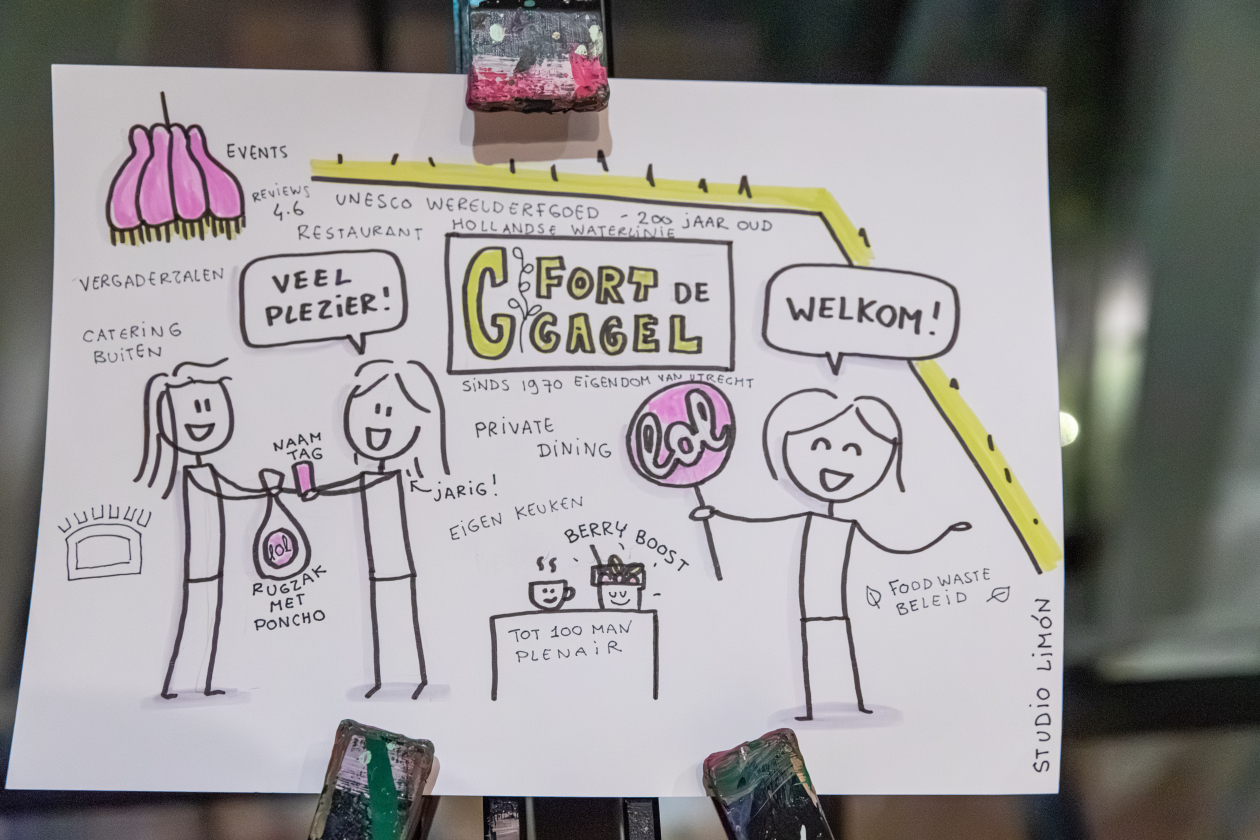 EVENTS
REVIEWS
4.6
UNESCO WERELDERFGOED - 200 JAAR OUD
HOLLANDSE WATERLINIE
RESTAURANT
VERGADERZALEN
VEEL
PLEZIER!
G FORT DE
GAGEL
WELKOM!
CATERING
BUITEN
SINDS 1970 EIGENDOM VAN UTRECHT
PRIVATE
DINING
lol
NAAM
TAG
JARIG!
EIGEN KEUKEN
BERRY BOOST
lol
RUGZAK
MET
PONCHO
TOT 100 MAN
PLENAIR
FOOD WASTE
BELEID
STUDIO LIMÓN